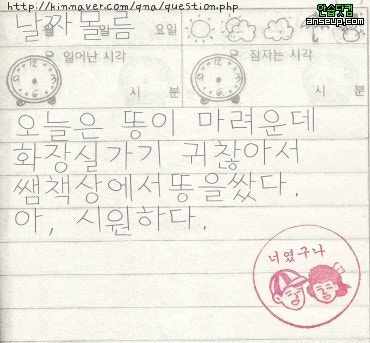 http://kinnaver.com/qna/question.php
안습닷컴
anseup.com
날짜몰름 요일
일어난 시각 잠자는 시각
시 분 시 분
오늘은 똥이 마려운데
화장실가기 귀찮아서
쌤책상에서똥을쌌다.
아, 시원하다.
너였구나